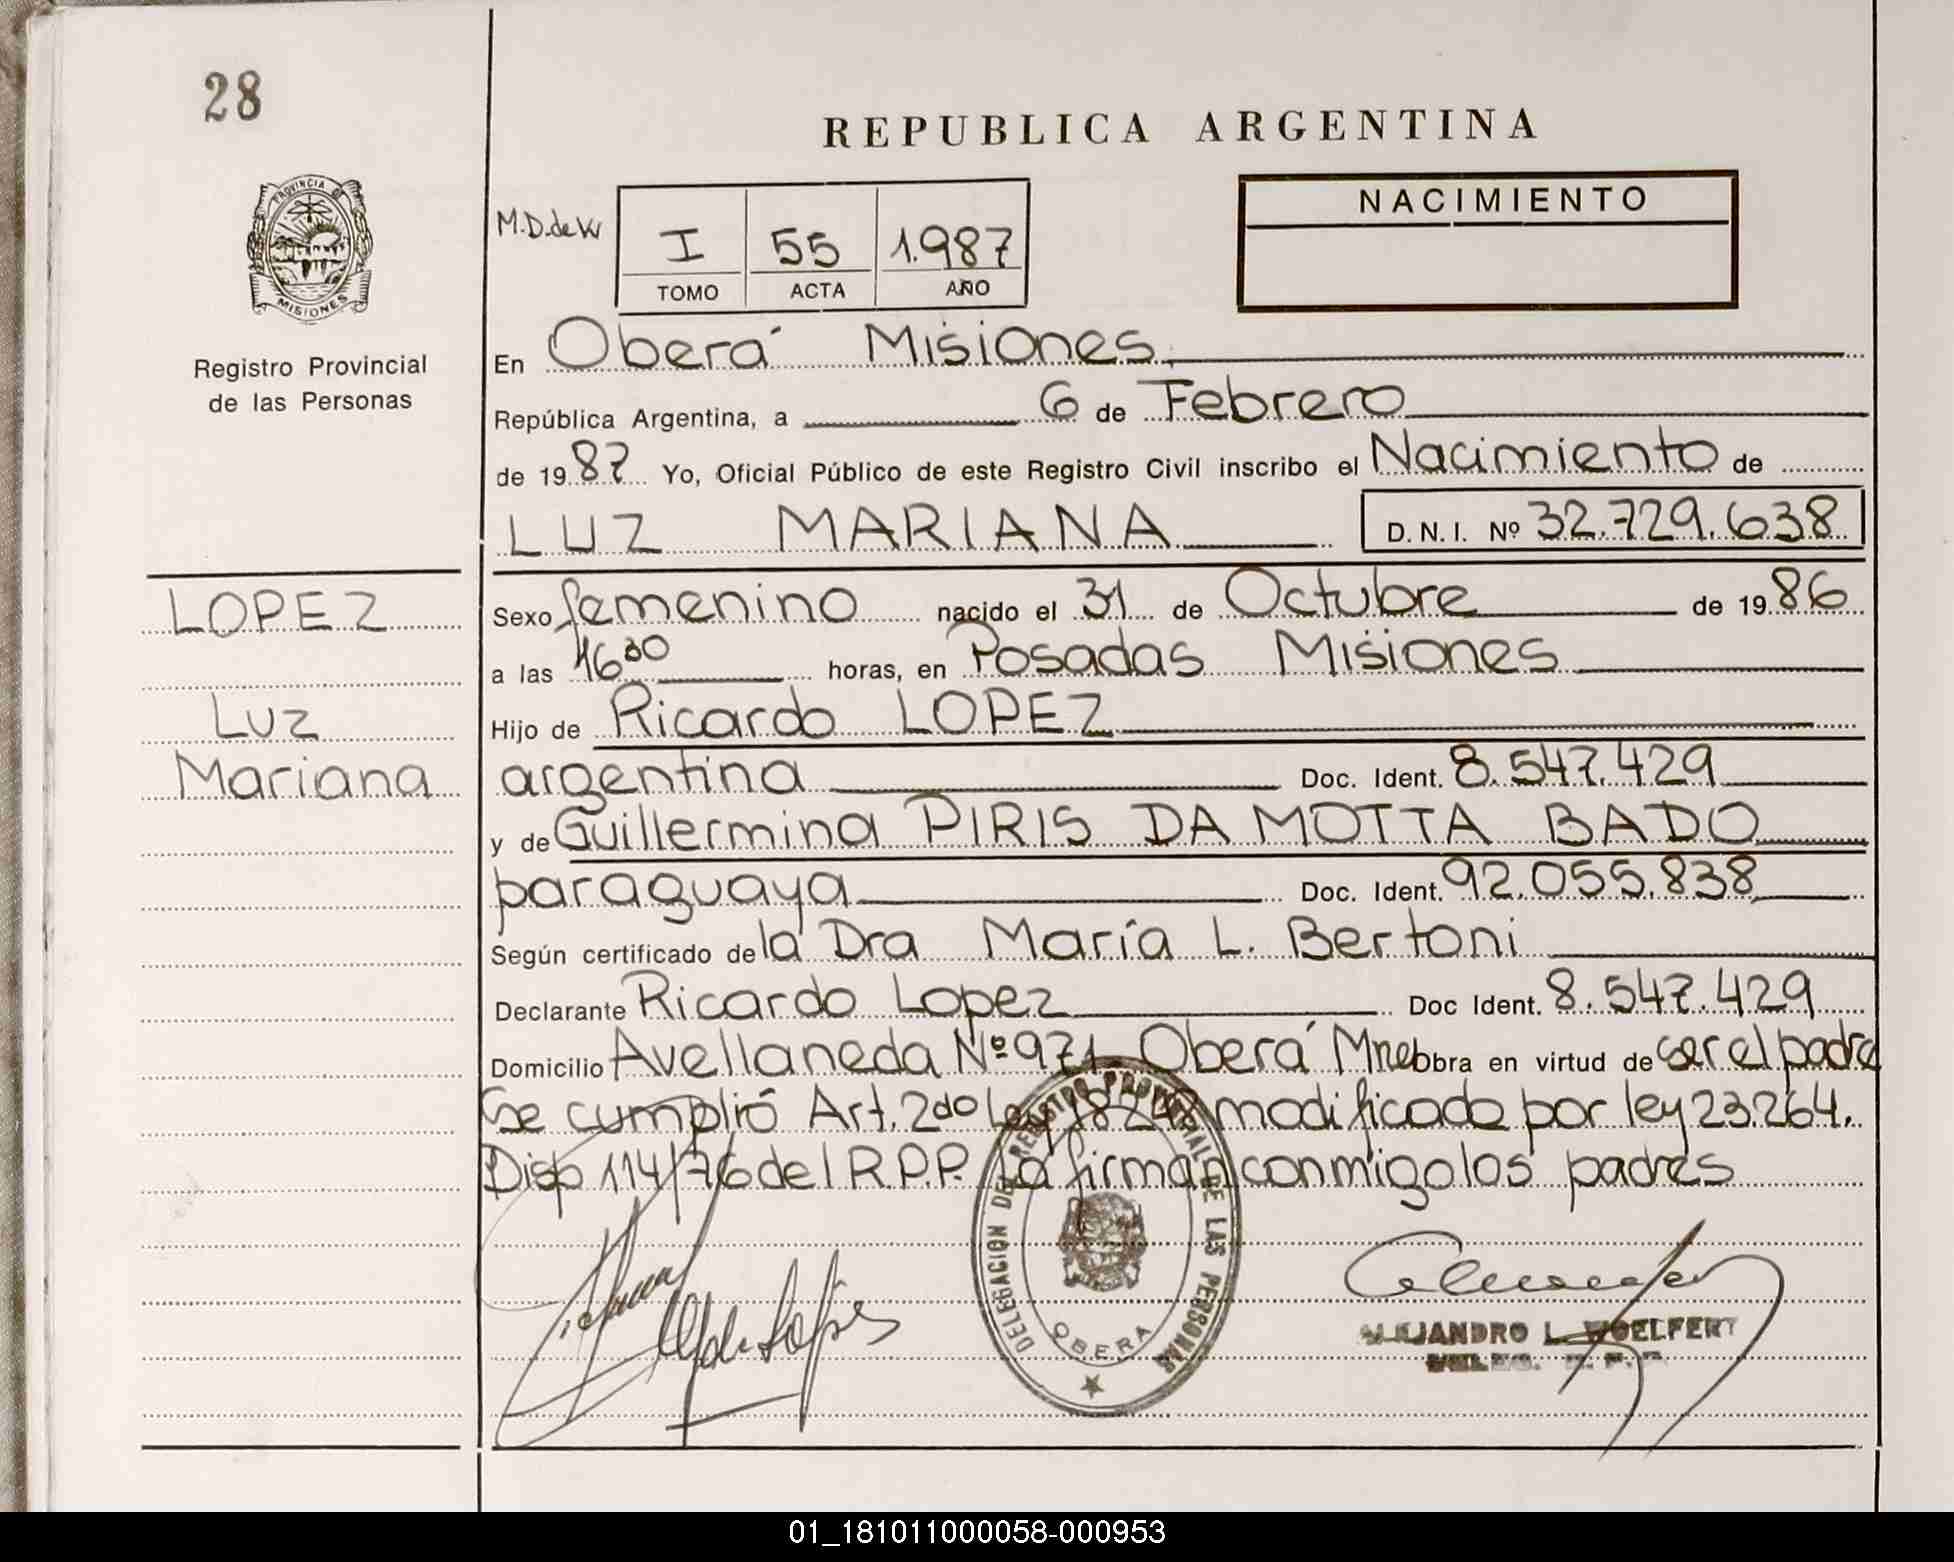 28
REPUBLICA ARGENTINA
PROVINCIA DE
MISIONES
Registro Provincial
de las Personas
M.D.de W
I 55 1.987
TOMO ACTA AÑO
NACIMIENTO
En Oberá Misiones
República Argentina, a 6 de Febrero
de 1987 Yo, Oficial Público de este Registro Civil inscribo el Nacimiento de
LUZ MARIANA D. N. I. Nº 32.729.638
LOPEZ
Luz
Mariana
Sexo femenino nacido el 31 de Octubre de 1986
a las 16 30 horas, en Posadas Misiones
Hijo de Ricardo LOPEZ
argentina Doc. Ident. 8.547.429
y de Guillermina PIRIS DA MOTTA BADO
paraguaya Doc. Ident. 92.055.838
Según certificado de la Dra María L. Bertoni
Declarante Ricardo Lopez Doc Ident. 8.547.429
Domicilio Avellaneda Nº 971 Oberá Mnes obra en virtud de ser el padre
Se cumplió Art. 2do Ley 18248 modificado por ley 23.264.
Disp 114/76 del R.P.P. La firman conmigo los padres
DELEGACION DEL REGISTRO PROVINCIAL DE LAS PERSONAS
OBERA
ALEJANDRO L. WOELFERT
01_181011000058-000953